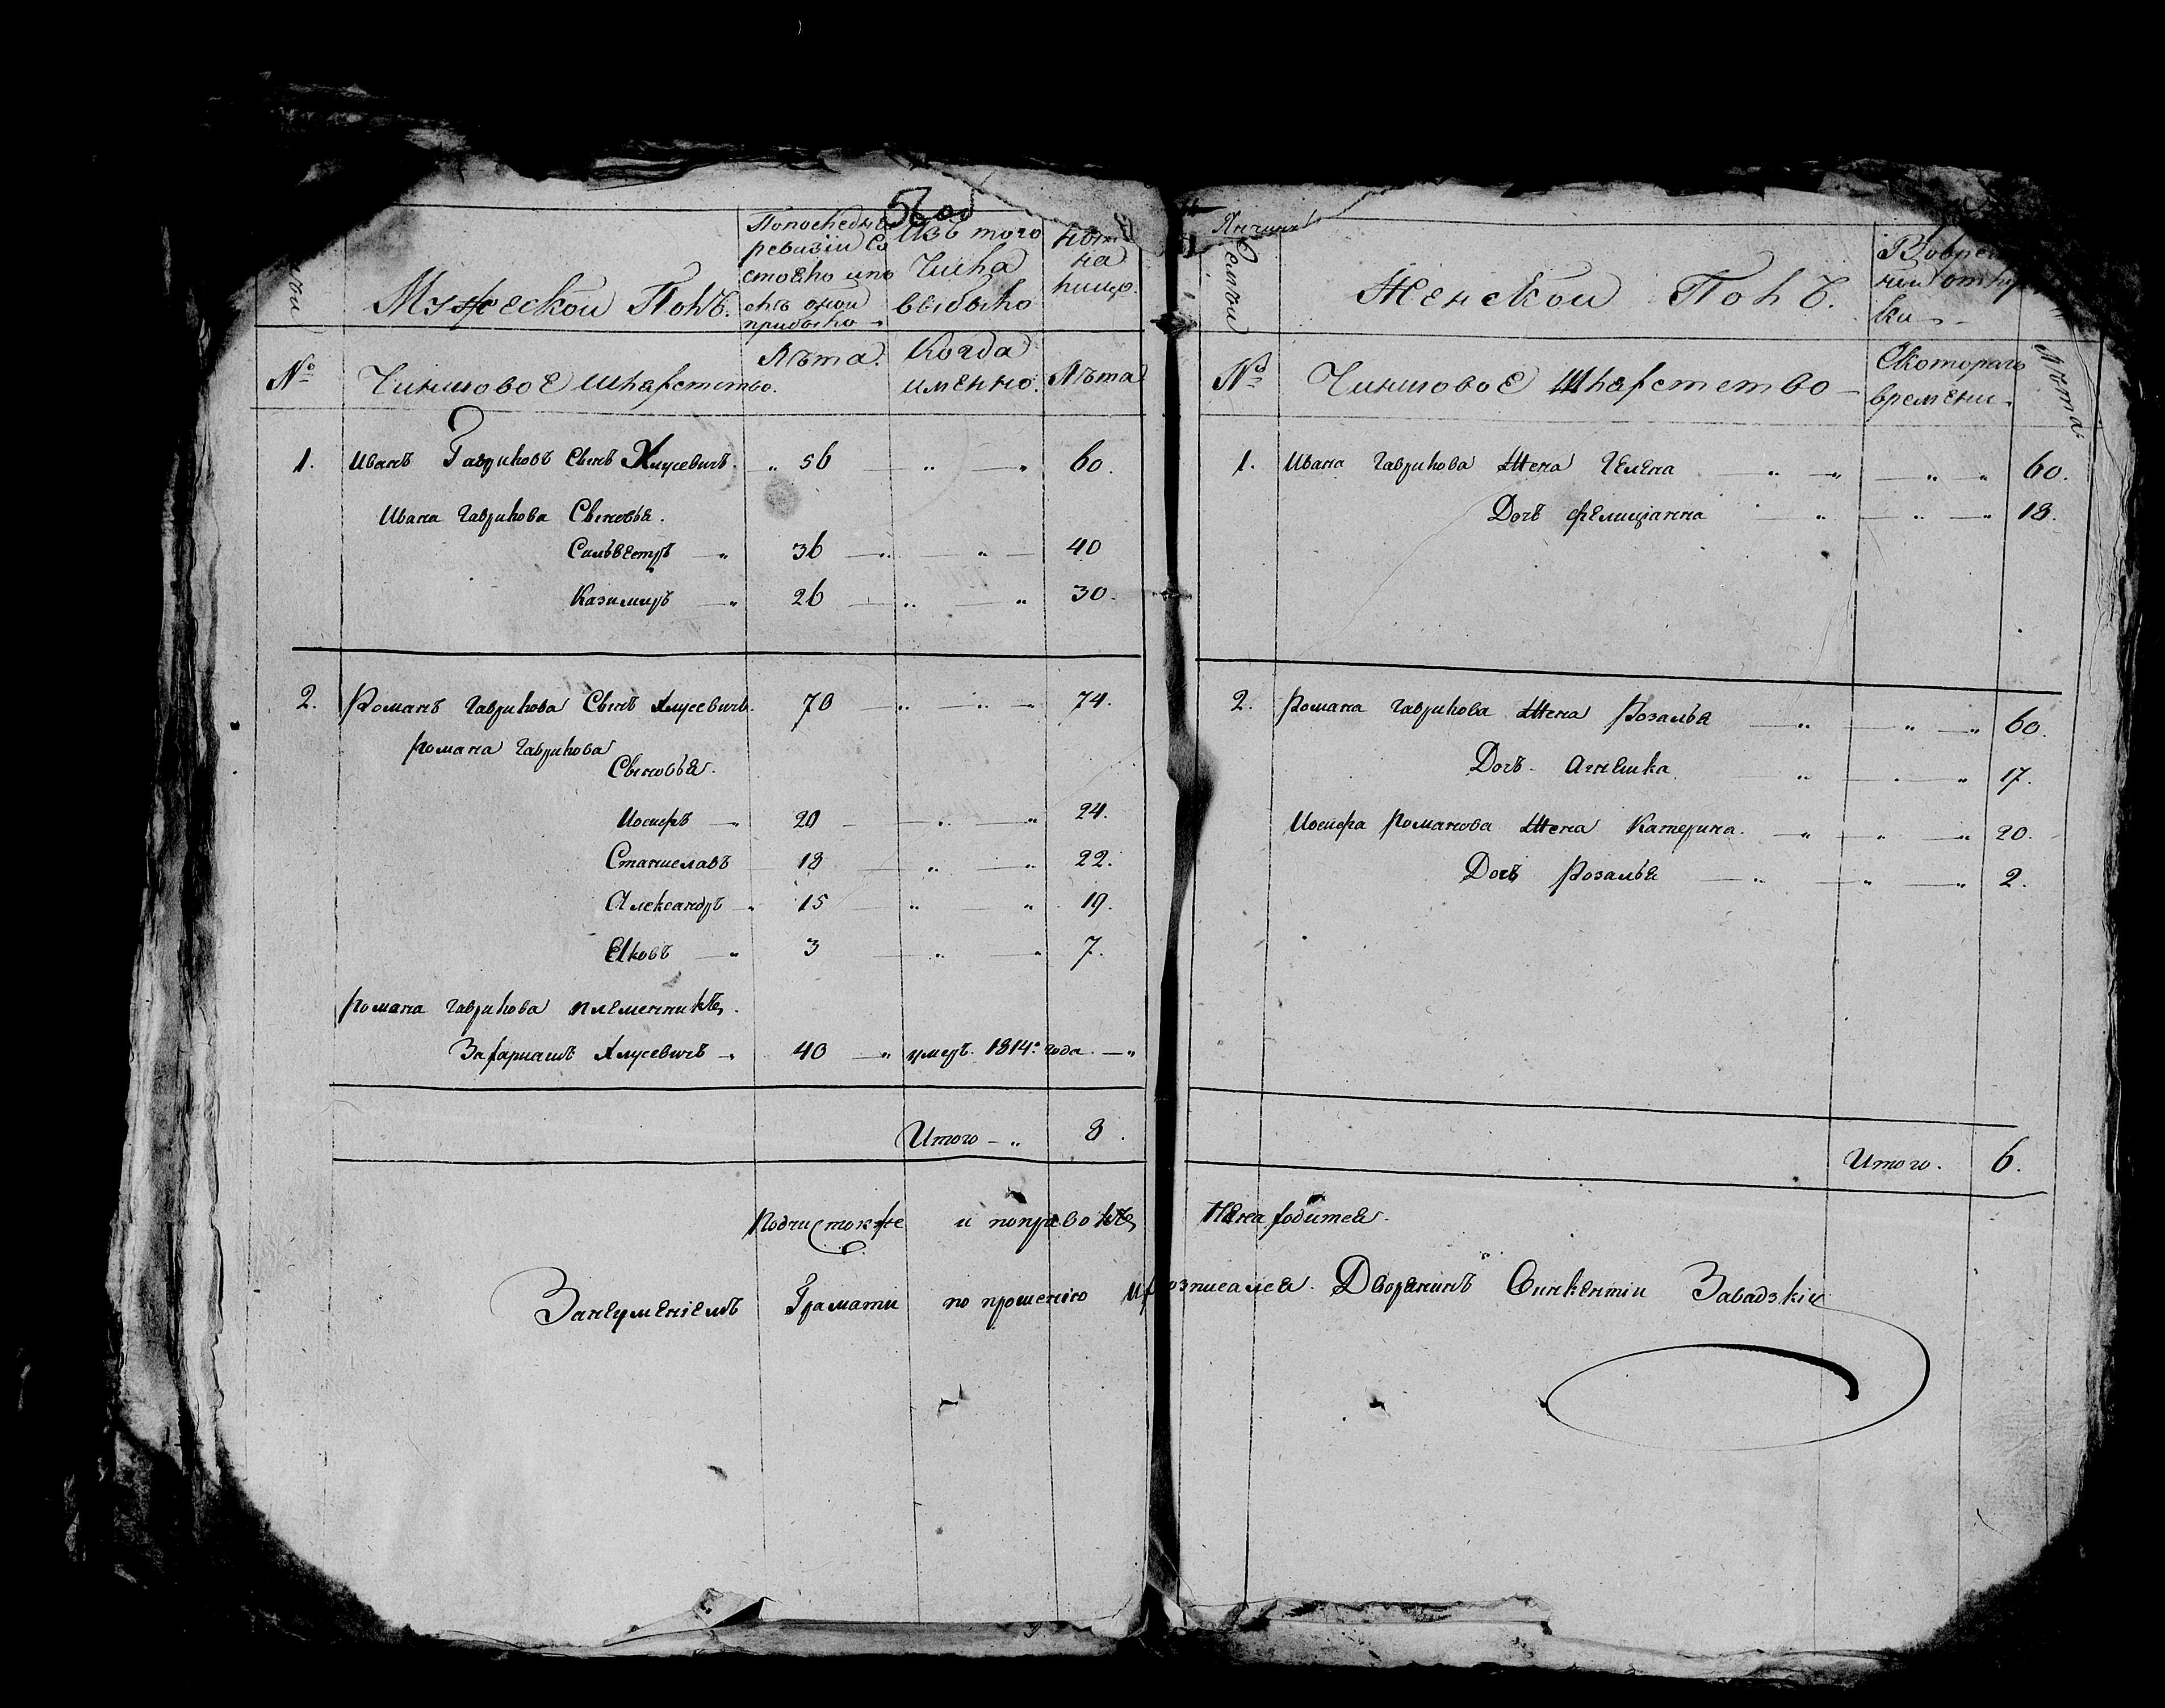 560
Мужеской Полъ.
Попоследней
ревизіи Со
стояло ипо
слѣ оной
прибыло
Изъ того
Числа
выбыло
Ныне
на
лицо.
№
Чиншовое Шляхетство.
Лѣта.
Когда
именно.
Лѣта
1. Иванъ Гавриловъ Сынъ Хлусевичъ. 56 60.
Ивана Гаврилова Сыновья.
Сильвестръ 36 40
Казимиръ 26 30.
2. Романъ Гаврилова Сынъ Хлусевичъ. 70 74.
Романа Гаврилова
Сыновья.
Иосифъ 20 24.
Станиславъ 18 22.
Александръ 15 19.
Яковъ 3 7.
Романа Гаврилова племенникъ.
Захариашъ Хлусевичъ 40 умеръ. 1814. года.
Итого 8.
Семьи
Женской Полъ.
Вовре
ки
№
Чиншовое Шляхетство
Скотораго
времени
Лѣта
1. Ивана Гаврилова Жена Гелена 60.
Дочъ Фелициянна 18.
2. Романа Гаврилова Жена Розалья 60.
Дочъ Агнешка 17.
Иосифа Романова Жена Катерина. 20.
Дочъ Розалья 2.
Итого. 6.
Подчистокже и поправокъ Ненаходится.
Занеумѣніемъ Грамати по прошенію Дворянинъ Винкентій Завадзкій